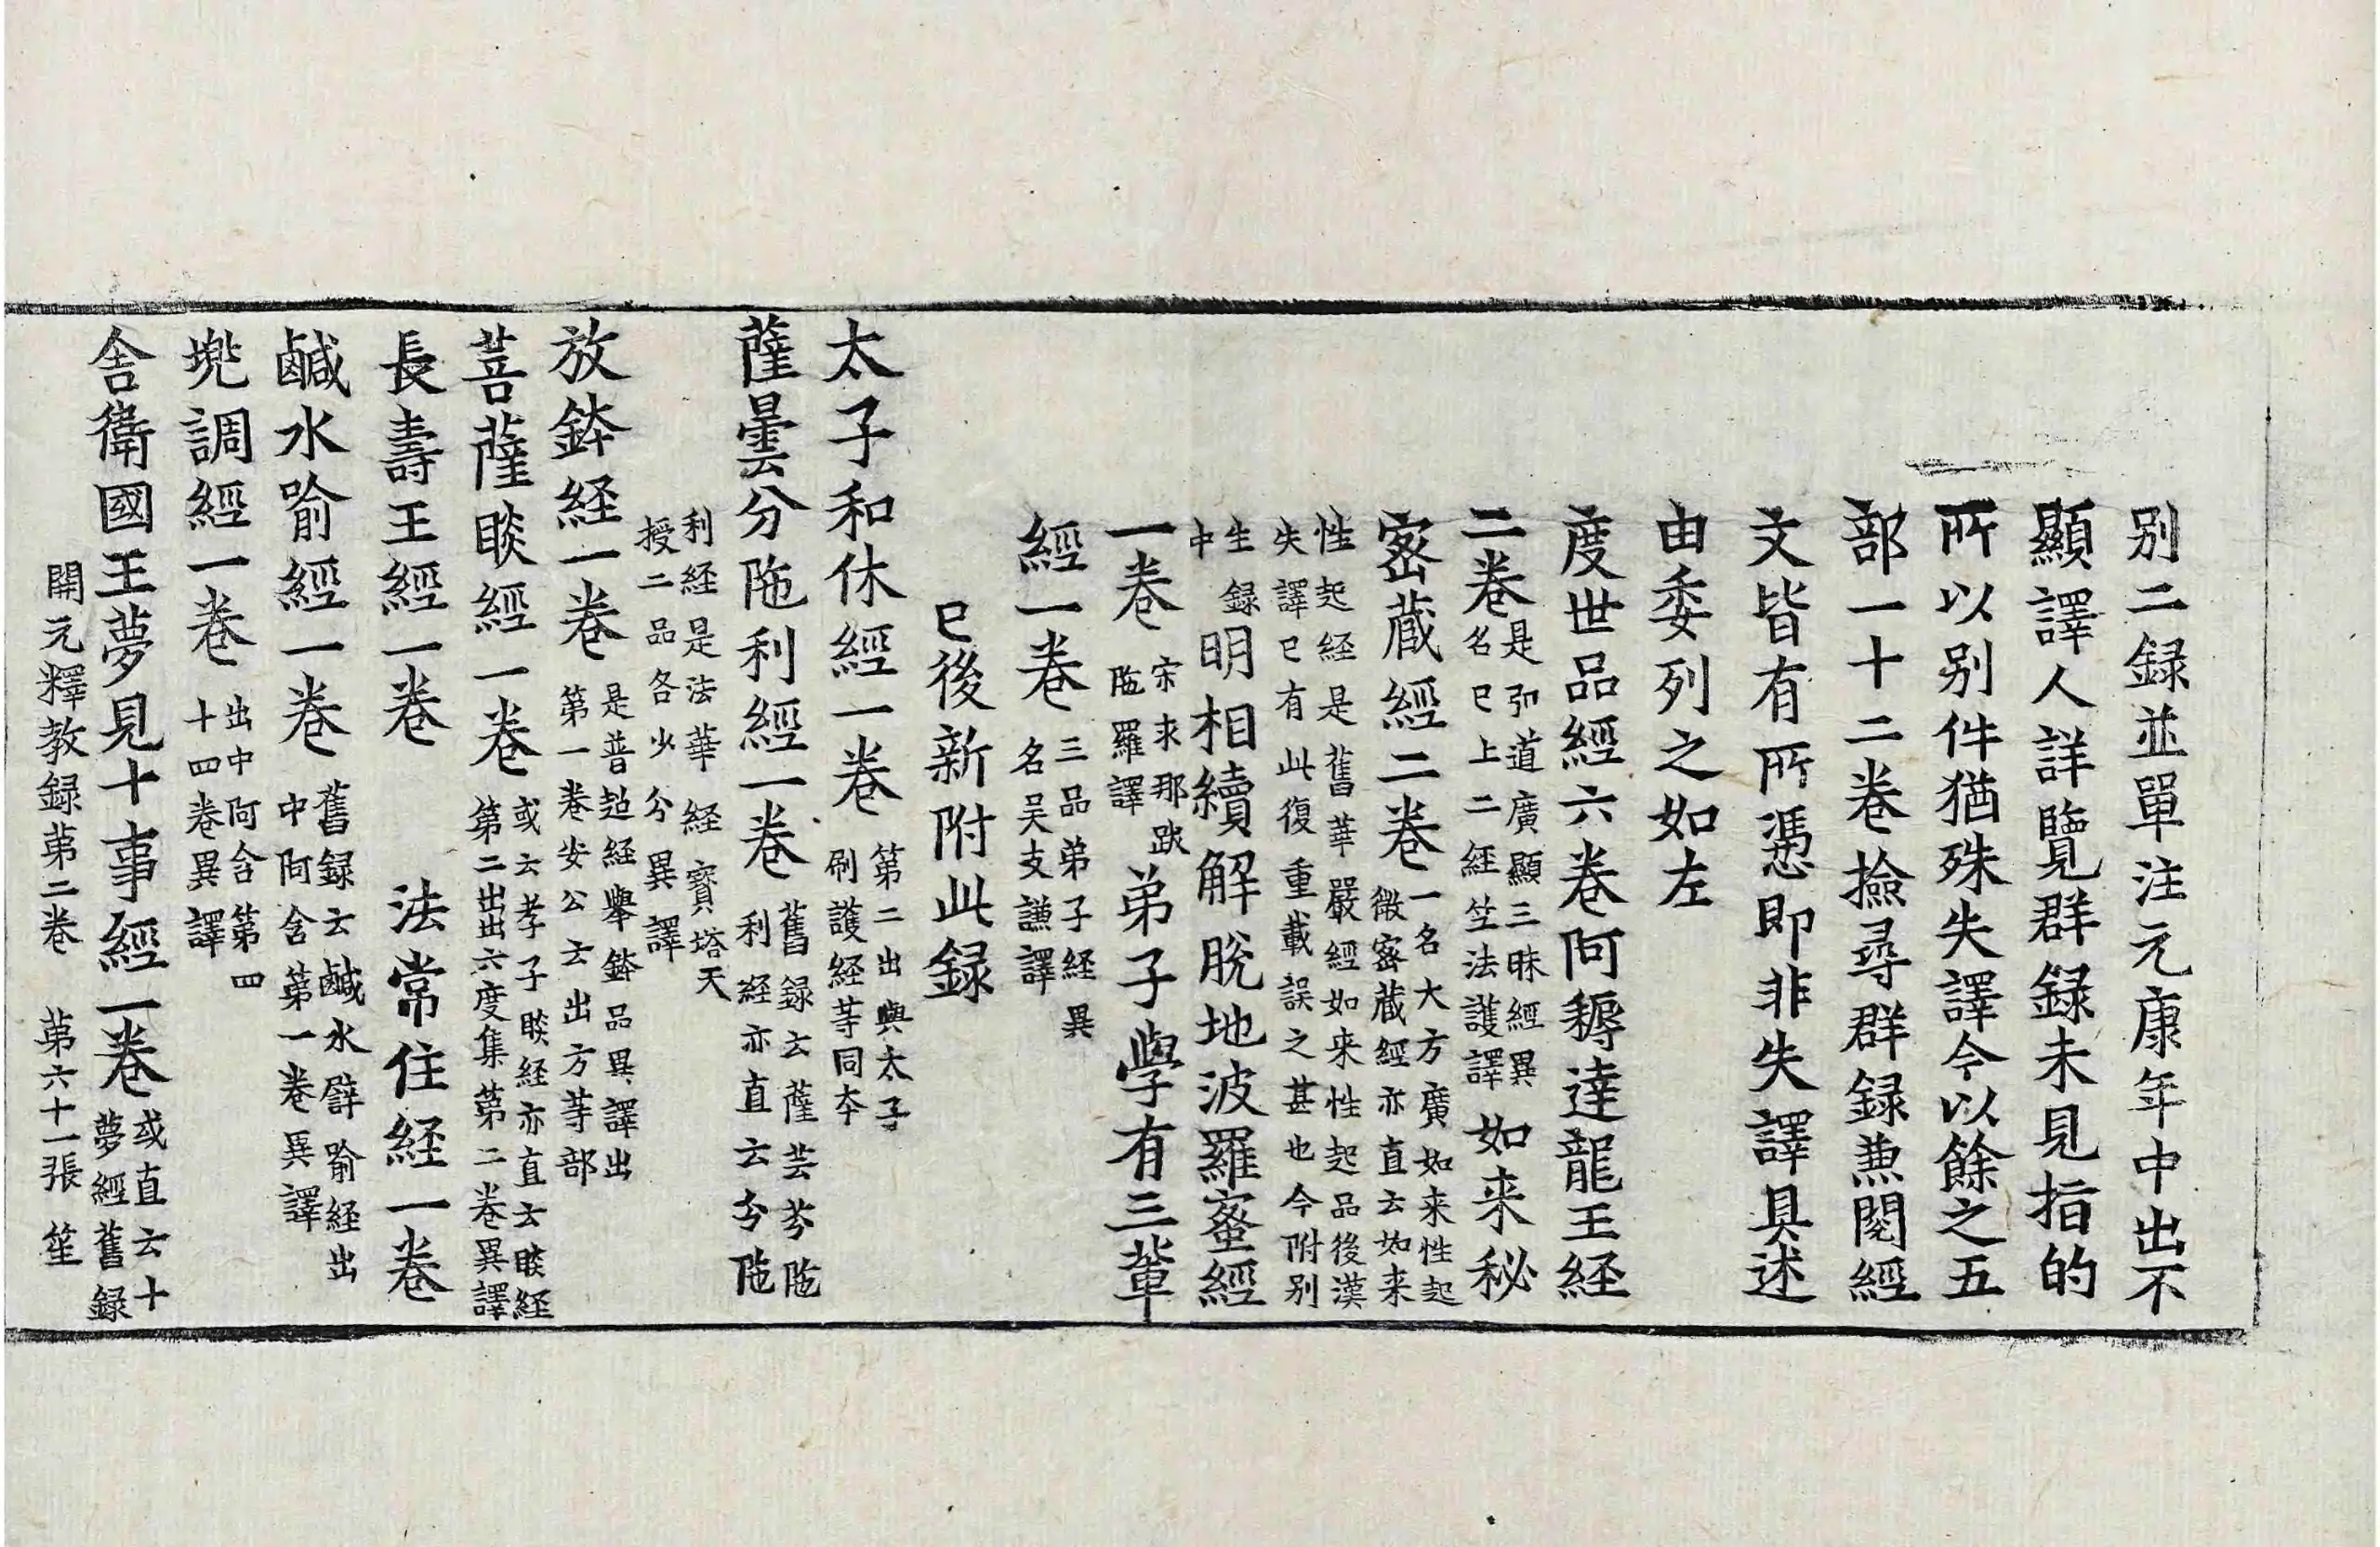 别二録並單注元康年中出不
顯譯人詳覽群録未見指的
所以别件猶殊失譯今以餘之五
部一十二卷撿尋群録兼閱經
文皆有所憑即非失譯具述
由委列之如左
度世品經六卷阿耨達龍王経
二卷
是弘道廣顯三昧經異
名已上二經竺法護譯
如来秘
密蔵經二卷
一名大方廣如来性起
微密蔵經亦直云如来
性起経是舊華嚴經如来性起品後漢
失譯已有此復重載誤之甚也今附别
生録
中
明相續解脫地波羅蜜經
一卷
宋求那跋
陁羅譯
弟子學有三輩
經一卷
三品弟子経異
名吴支謙譯
已後新附此録
太子和休經一卷
第二出與太子
刷護経等同本
薩曇分陁利經一卷
舊録云薩芸芬陁
利經亦直云分陁
利経是法華経寶塔天
授二品各少分異譯
放鉢経一卷
是普超経舉鉢品異譯出
第一卷安公云出方等部
菩薩睒經一卷
或云孝子睒経亦直云睒経
第二出出六度集第二卷異譯
長壽王經一卷　法常住経一卷
鹹水喻經一卷
舊録云鹹水譬喻経出
中阿含第一卷異譯
兠調經一卷
出中阿含第四
十四卷異譯
舎衛國王夢見十事經一卷
或直云十
夢經舊録
開元釋教録苐二卷　苐六十一張　笙